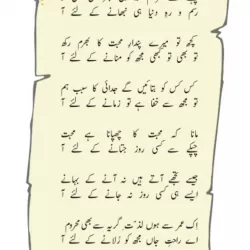 رسم و رہِ دنیا ہی نبھانے کے لئے آ
کچھ تو میرے پندارِ محبت کا بھرم رکھ
تو بھی تو کبھی مجھ کو منانے کے لئے آ
کس کس کو بتائیں گے جدائی کا سبب ہم
تو مجھ سے خفا ہے تو زمانے کے لئے آ
مانا کہ محبت کا چھپانا ہے محبت
چپکے سے کسی روز جتانے کے لئے آ
جیسے تجھے آتے ہیں نہ آنے کے بہانے
ایسے ہی کسی روز نہ جانے کے لئے آ
اِک عمر سے ہوں لذتِ گریہ سے بھی محروم
اے راحتِ جاں مجھ کو رُلانے کے لئے آ